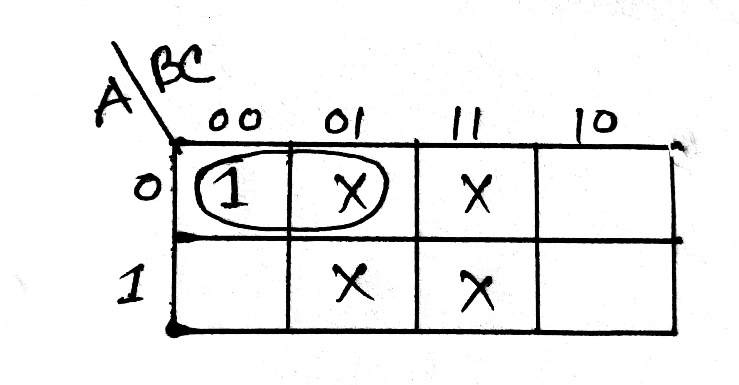 A BC
00 01 11 10
0 1 X X
1 X X